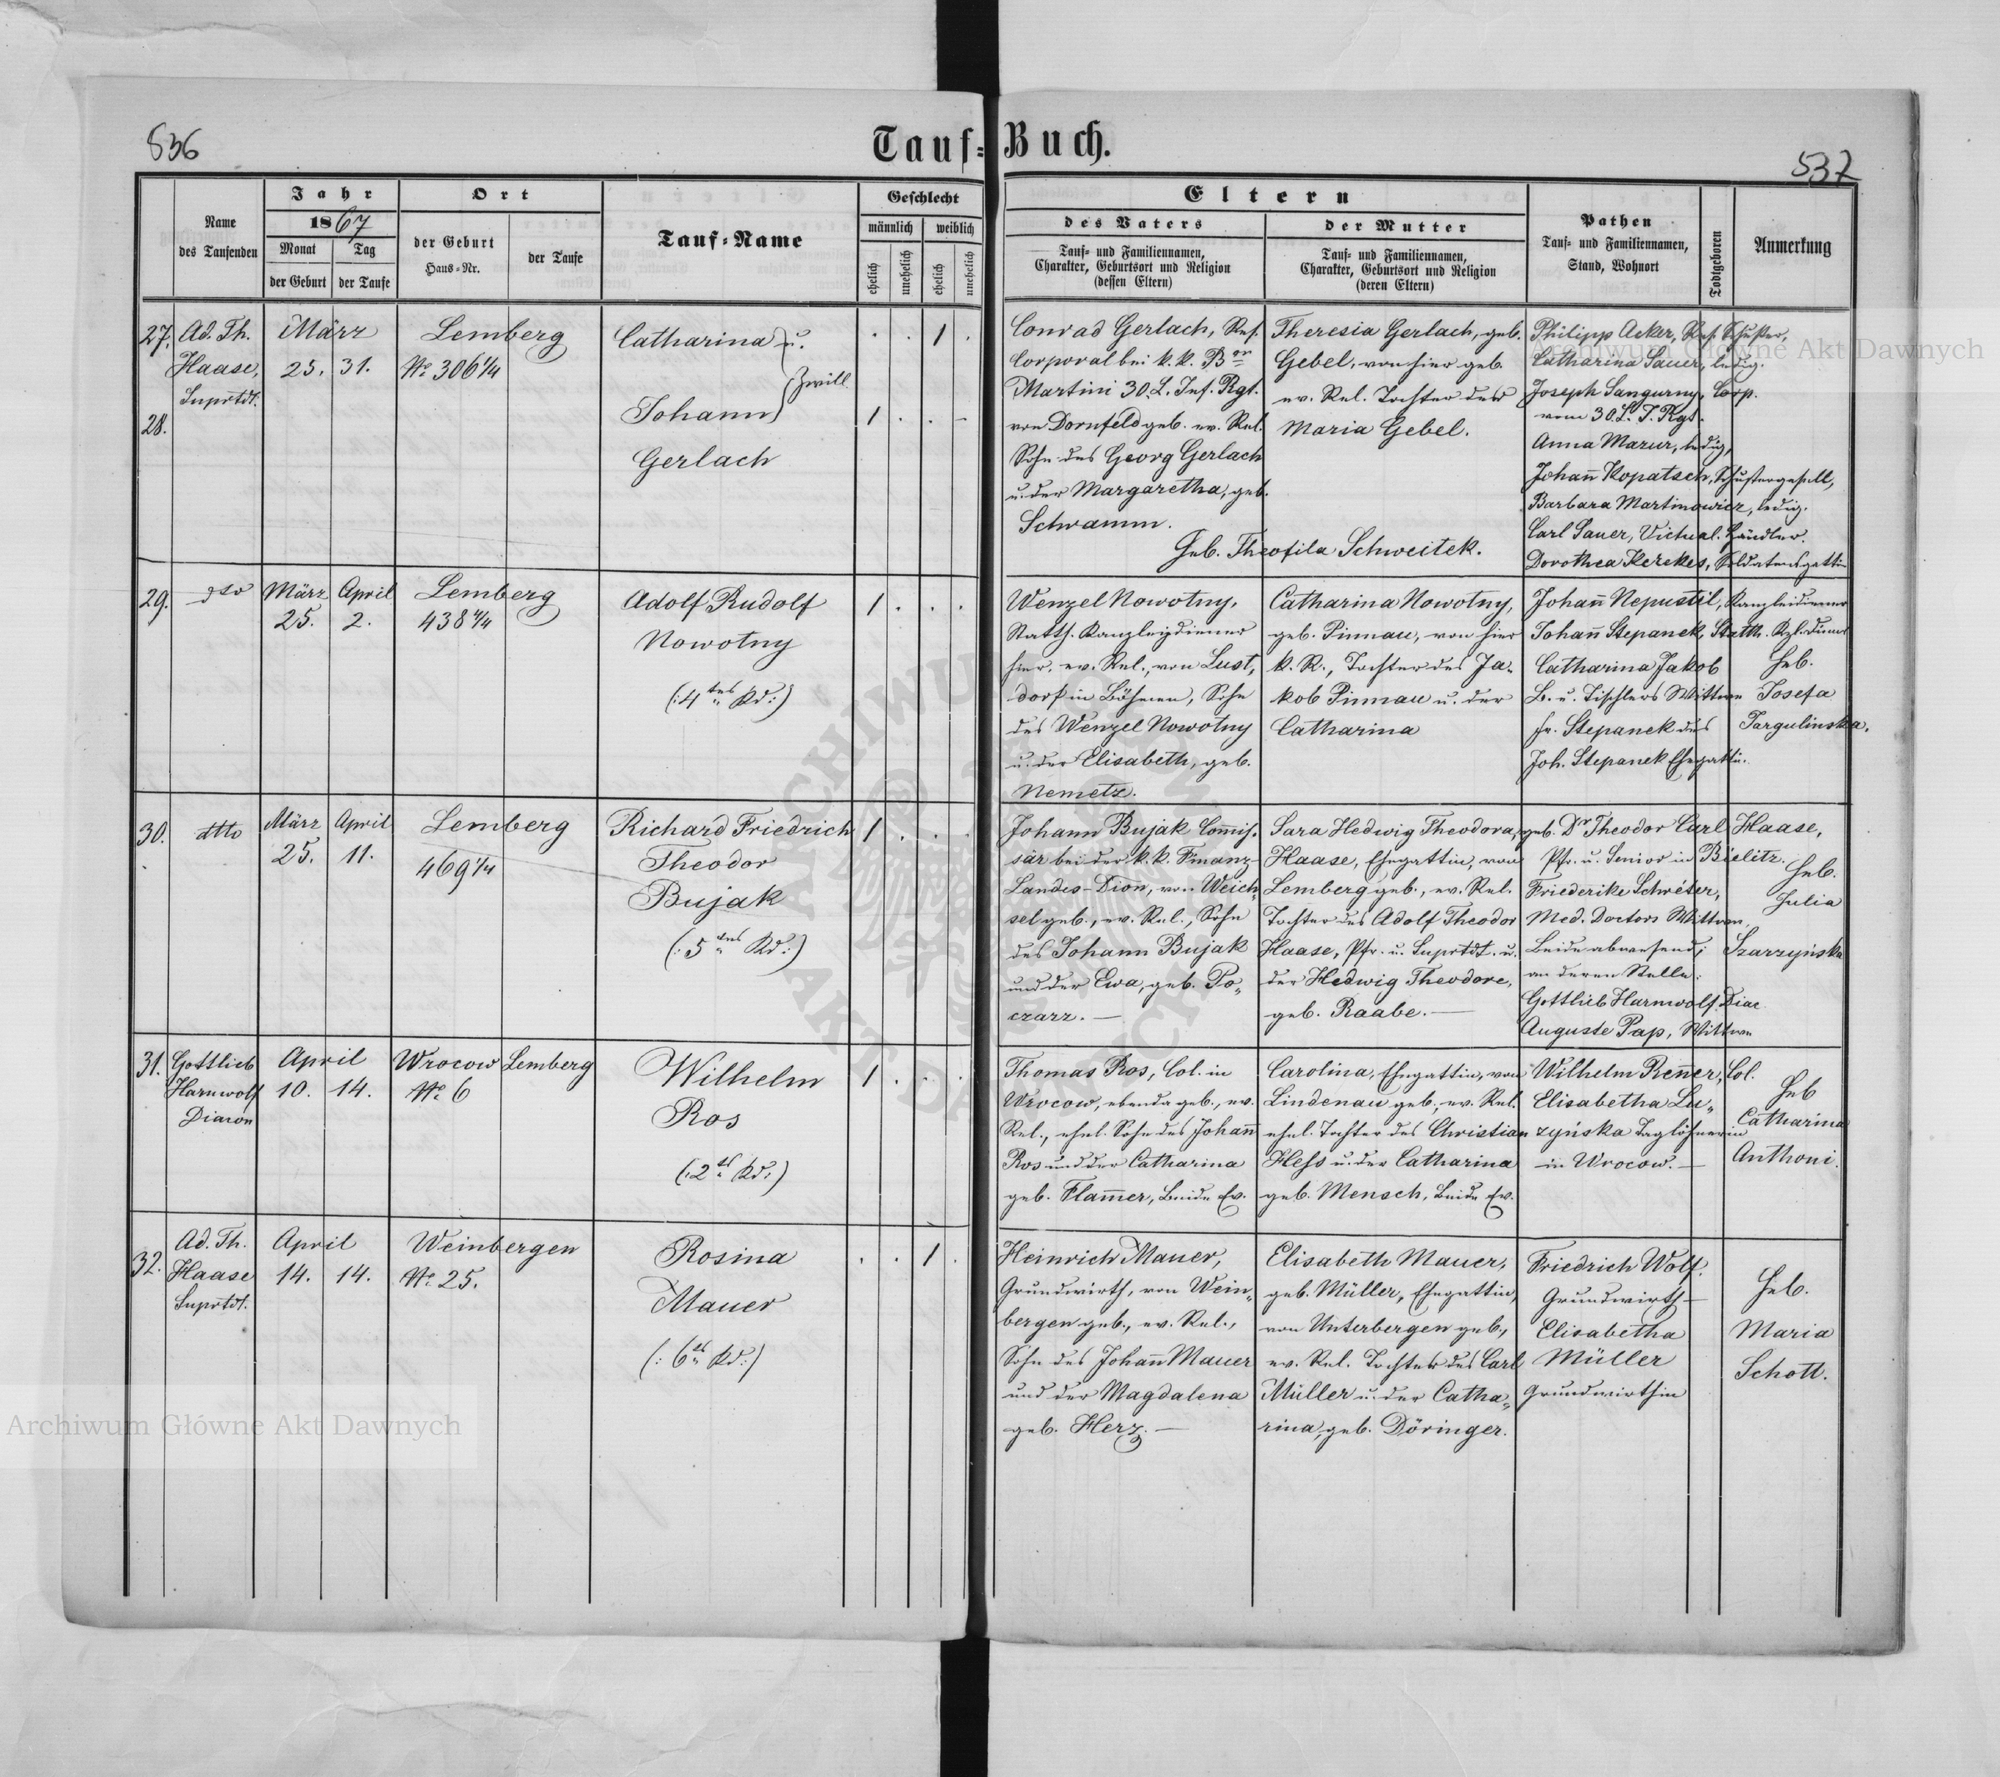 536
Tauf-Buch.
537
Name
des Taufenden
Jahr
1867
Monat
Tag
der Geburt
der Taufe
Ort
der Geburt
Haus-Nr.
der Taufe
Tauf-Name
Geschlecht
männlich
weiblich
ehelich
unehelich
ehelich
unehelich
Eltern
des Vaters
Tauf- und Familiennamen,
Charakter, Geburtsort und Religion
(dessen Eltern)
der Mutter
Tauf- und Familiennamen,
Charakter, Geburtsort und Religion
(deren Eltern)
Pathen
Tauf- und Familiennamen,
Stand, Wohnort
Todtgeboren
Anmerkung
27.
28.
Ad. Th.
Haase,
Suprtdt.
März
25. 31.
Lemberg
No 306 1/4
Catharina u.
Zwill
Johann
Gerlach
1
1
Conrad Gerlach, Res.
Corporal bei k. k. Bon
Martini 30. L. Inf. Rgt.
von Dornfeld geb. ev. Rel.
Sohn des Georg Gerlach
u. der Margaretha, geb.
Schwamm.
Theresia Gerlach, geb.
Gebel, von hier geb.
ev. Rel. Tochter der
Maria Gebel.
Heb. Theofila Schweitek.
Philipp Acker, Res. Schuster,
Catharina Sauer, ledig.
Joseph Sangurny, Corp.
vom 30. L. I. Rgt.
Anna Mazur, ledig,
Johan̄ Kopatsch, Schustergesell,
Barbara Martinowicz, ledig.
Carl Sauer, Victual. Händler.
Dorothea Kerekes, Soldatensgattin
29.
dto
März April
25. 2.
Lemberg
438 4/4
Adolf Rudolf
Nowotny
(:4tes Kd:)
1
Wenzel Nowotny,
Statth. Kanzleidiener
hier, ev. Rel., von Lust,
dorf in Böhmen, Sohn
des Wenzel Nowotny
u. der Elisabeth, geb.
Nemetz.
Catharina Nowotny,
geb. Pinnau, von hier
k. R., Tochter des Ja-
kob Pinnau u. der
Catharina
Johan̄ Nepustil, Kanzleidiener
Johan̄ Stepanek, Statth. Kzl. Diener
Catharina Jakob
B. u. Tischlers Wittwe
Fr. Stepanek des
Joh. Stepanek Ehegattin.
Heb.
Josefa
Targulinska.
30.
dtto
März April
25. 11.
Lemberg
469 1/4
Richard Friedrich
Theodor
Bujak
(:5tes Kd:)
1
Johann Bujak Com̄is-
sär bei der k. k. Finanz-
Landes-Dion, von Weich-
sel geb., ev. Rel., Sohn
des Johann Bujak
und der Ewa, geb. Po-
czarz. —
Sara Hedwig Theodora, geb.
Haase, Ehegattin, von
Lemberg geb., ev. Rel.
Tochter des Adolf Theodor
Haase, Pfr. u. Suprtdt. u.
der Hedwig Theodore,
geb. Raabe. —
Dr Theodor Carl Haase,
Pfr. u. Senior in Bielitz.
Friederike Schwéter,
Med. Doctors Wittwe,
Beide abwesend;
an deren Stelle:
Gottlieb Harnwolf. Diac
Auguste Pap, Wittwe
Heb.
Julia
Szarzyńska
31.
Gottlieb
Harnwolf
Diacon
April
10. 14.
Wrocow
No 6
Lemberg
Wilhelm
Ros
(:2tes Kd:)
1
Thomas Ros, Col. in
Wrocow, ebenda geb., ev.
Rel., ehel. Sohn des Johan̄
Ros und der Catharina
geb. Flam̄er, Beide Ev.
Carolina, Ehegattin, von
Lindenau geb., ev. Rel.
ehel. Tochter des Christian
Hess u. der Catharina
geb. Mensch, Beide Ev.
Wilhelm Ren̄er, Col.
Elisabetha Lu-
zyńska Taglöhnerin
in Wrocow. —
Heb
Catharina
Anthoni.
32.
Ad. Th.
Haase
Suprtdt.
April
14. 14.
Weinbergen
No 25.
Rosina
Mauer
(:6tes Kd:)
1
Heinrich Mauer,
Grundwirth, von Wein-
bergen geb., ev. Rel.,
Sohn des Johan̄ Mauer
und der Magdalena
geb. Herz. —
Elisabeth Mauer,
geb. Müller, Ehegattin,
von Unterbergen geb.,
ev. Rel. Tochter des Carl
Müller u. der Catha-
rina, geb. Döringer.
Friedrich Wolf.
Grundwirth —
Elisabetha
Müller
Grundwirthin
Heb.
Maria
Schott.
Archiwum Główne Akt Dawnych
Archiwum Główne Akt Dawnych